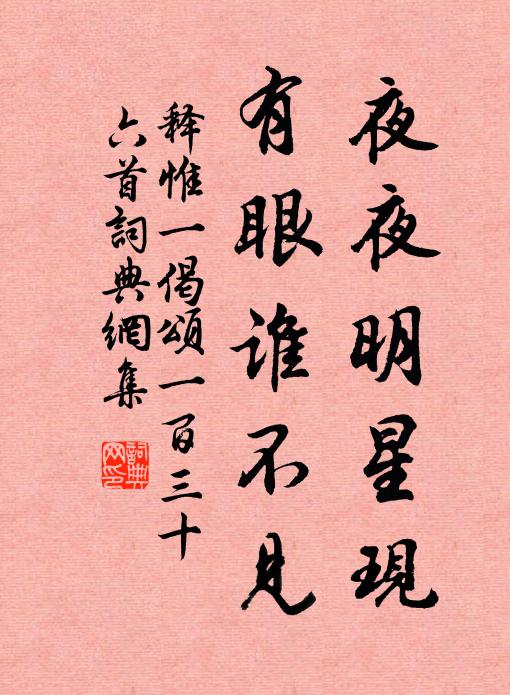 夜夜明星現
有眼谁不見
释惟一偈頌一百三十
六首詞典網集
詞典
网印